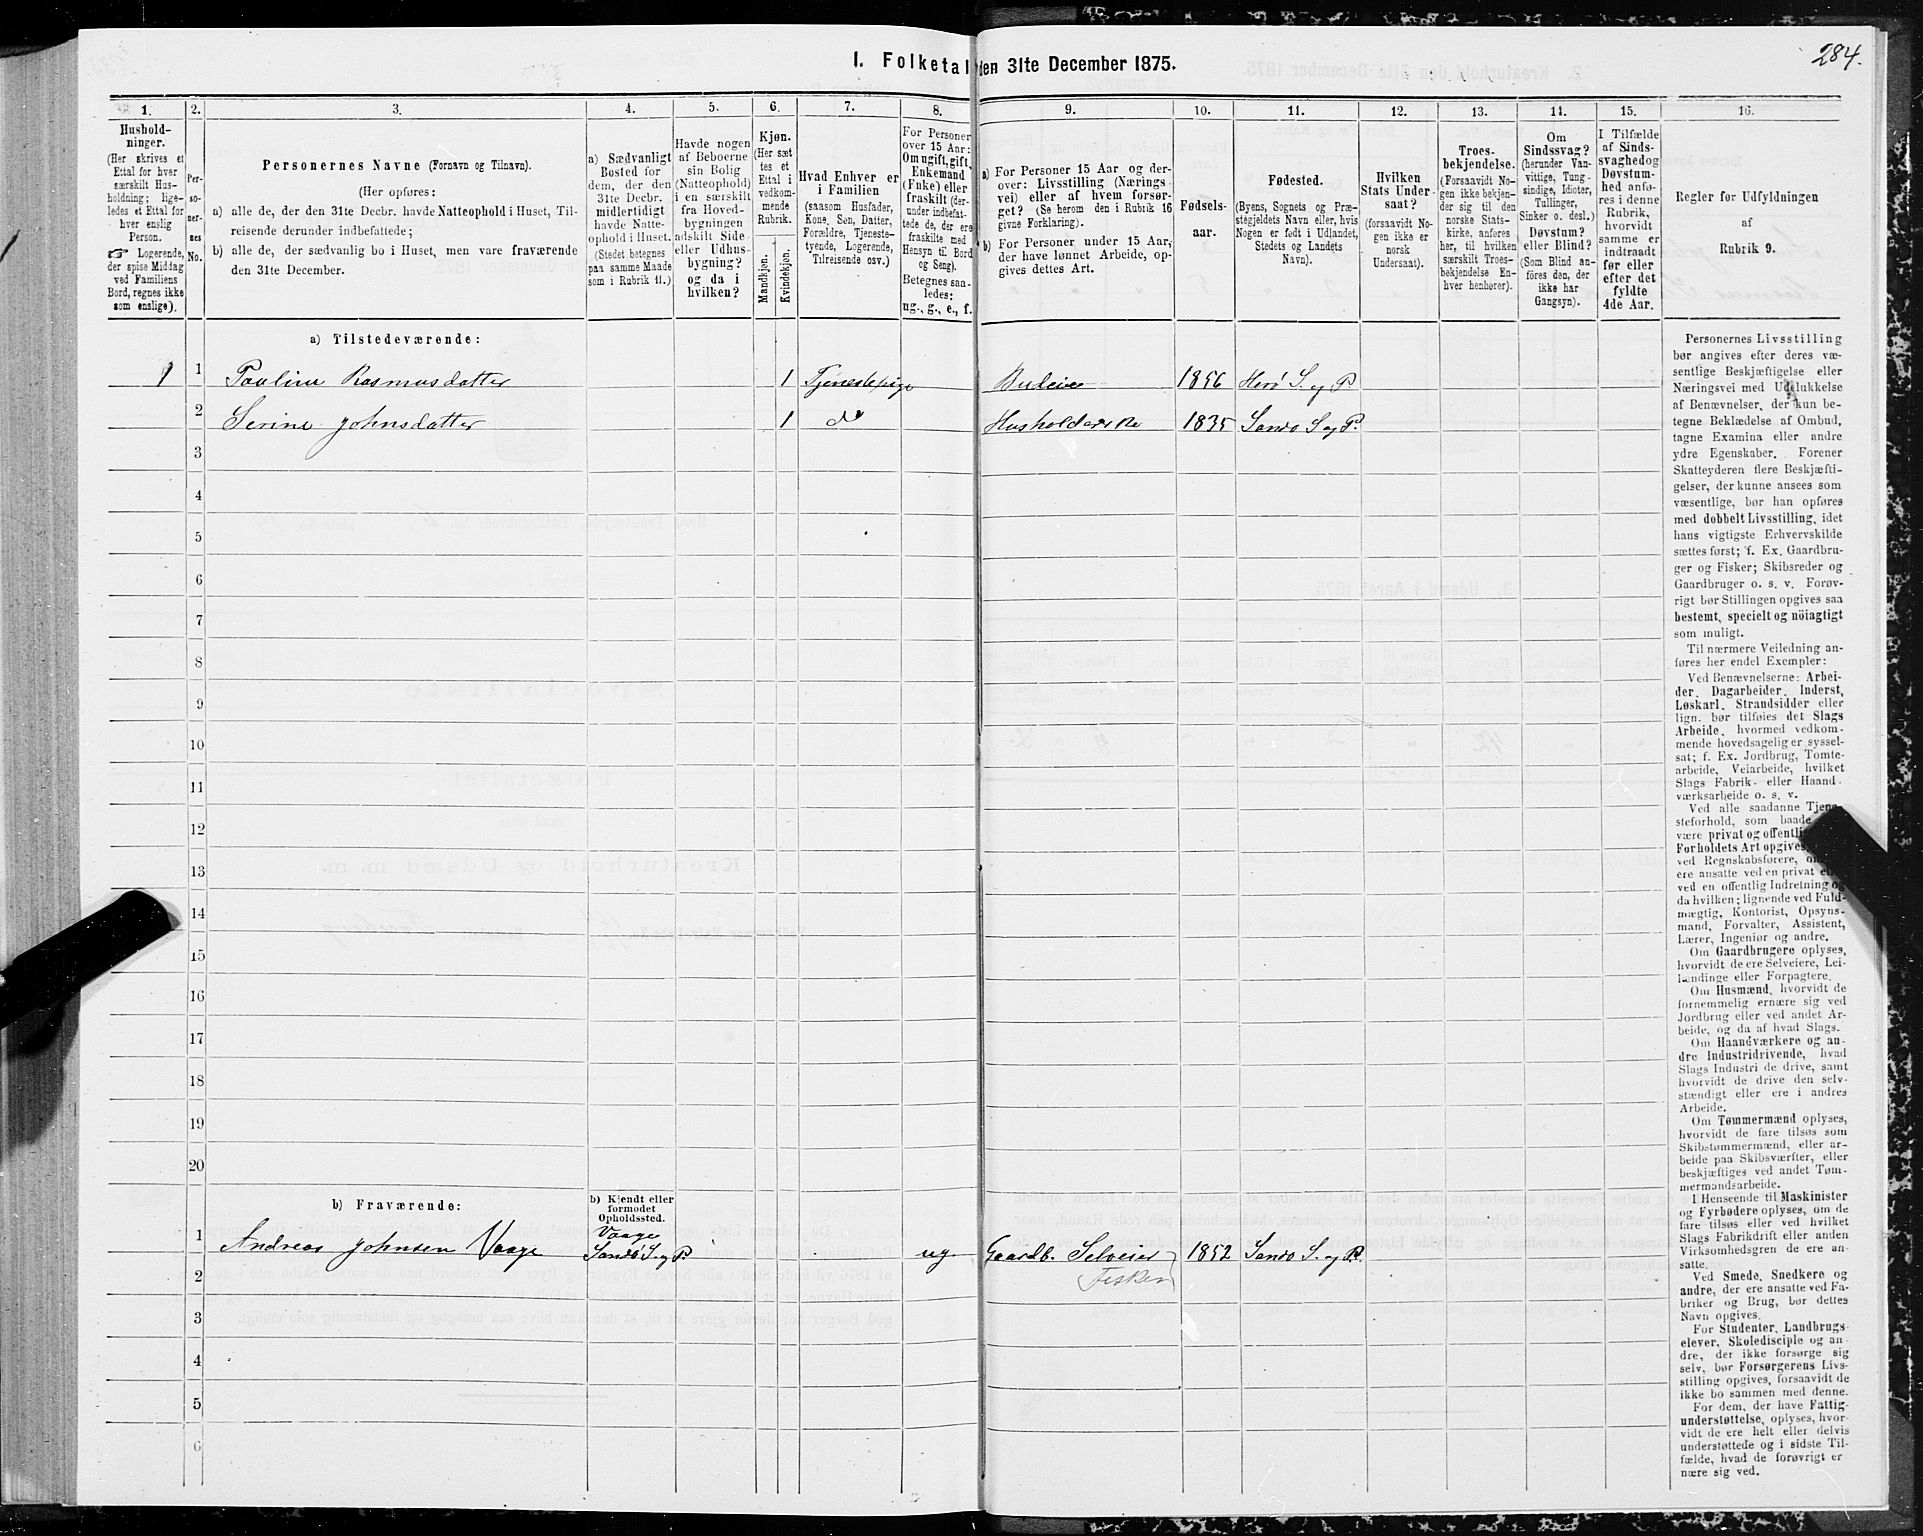 284.
1. Folketal den 31te December 1875.
1. 2. 3. 4. 5. 6. 7. 8. 9. 10. 11. 12. 13. 14. 15. 16.
Hushold-
ninger.
(Her skrives et
Ettal for hver
særskilt Hus-
holdning; lige-
ledes et Ettal for
hver enslig
Person.
☞ Logerende,
der spise Middag
ved Familiens
Bord, regnes ikke
som enslige).
Per-
so-
ner-
nes
No.
Personernes Navne (Fornavn og Tilnavn).
(Her opføres:
a) alle de, der den 31te Decbr. havde Natteophold i Huset, Til-
reisende derunder indbefattede;
b) alle de, der sædvanlig bo i Huset, men vare fraværende
den 31te December.
a) Sædvanligt
Bosted for
dem, der den
31te Decbr.
midlertidigt
havde Natte-
ophold i Huset.
(Stedet betegnes
paa samme Maade
som i Rubrik 11.)
Havde nogen
af Beboerne
sin Bolig
(Natteophold)
i en særskilt
fra Hoved-
bygningen
adskilt Side-
eller Udhus-
bygning?
og da i
hvilken?
Kjøn.
(Her sæt-
tes et
Ettal i
vedkom-
mende
Rubrik.
Mandkjøn.
Kvindekjøn.
Hvad Enhver er
i Familien
(saasom Husfader,
Kone, Søn, Datter,
Forældre, Tjeneste-
tyende, Logerende,
Tilreisende osv.)
For Personer
over 15 Aar:
Om ugift, gift,
Enkemand
(Enke) eller
fraskilt (der-
under indbefat-
tede de, der ere
fraskilte med
Hensyn til Bord
og Seng).
Betegnes saa-
ledes:
ug., g., e., f.
a) For Personer 15 Aar og der-
over: Livsstilling (Nærings-
vei) eller af hvem forsør-
get? (Se herom den i Rubrik 16
givne Forklaring).
b) For Personer under 15 Aar,
der have lønnet Arbeide, op-
gives dettes Art.
Fødsels-
aar.
Fødested.
(Byens, Sognets og Præ-
stegjeldets Navn eller, hvis
Nogen er født i Udlandet,
Stedets og Landets
Navn).
Hvilken
Stats Under-
saat?
(forsaavidt No-
gen ikke er
norsk
Undersaat).
Troes-
bekjendelse.
(Forsaavidt No-
gen ikke bekjen-
der sig til den
norske Stats-
kirke, anføres
her, til hvilken
særskilt Troes-
bekjendelse En-
hver henhører).
Om
Sindssvag?
(herunder Van-
vittige, Tung-
sindige, Idioter,
Tullinger,
Sinker o. desl.)
Døvstum?
eller Blind?
(Som Blind an-
føres den, der
ikke har
Gangsyn).
I Tilfælde
af Sinds-
svaghed og
Døvstum-
hed anfø-
res i denne
Rubrik,
hvorvidt
samme er
indtraadt
før eller
efter det
fyldte
4de Aar.
Regler for Udfyldningen
af
Rubrik 9.
a) Tilstedeværende:
1 1 Pauline Rasmusdatter 1 Tjenestepige Budeie 1856 Herö S. og P.
2 Serine Johnsdatter 1 do Husholderske 1835 Sandö S. og P.
3
4
5
6
7
8
9
10
11
12
13
14
15
16
17
18
19
20
b) Fraværende:
b) Kjendt eller
formodet
Opholdssted.
1 Andreas Johnsen Vaage Vaage
Sandö S. og P. ug. Gaardb. Selveier 1852 Sandö S. og P.
Fisker
2
3
4
5
6
Personernes Livsstilling
bør angives efter deres væ-
sentlige Beskjæftigelse eller
Næringsvei med Udelukkelse
af Benævnelser, der kun be-
tegne Beklædelse af Ombud,
tagne Examina eller andre
ydre Egenskaber. Forener
Skatteyderen flere Beskjæfti-
gelser, der kunne ansees som
væsentlige, bør han opføres
med dobbelt Livsstilling, idet
hans vigtigste Erhvervskilde
sættes først; f. Ex. Gaardbru-
ger og Fisker; Skibsreder og
Gaardbruger o. s. v. Forøv-
rigt bør Stillingen opgives saa
bestemt, specielt og nöiagtigt
som muligt.
Til nærmere Veiledning an-
føres her endel Exempler:
Ved Benævnelserne: Arbei-
der, Dagarbeider, Inderst,
Løskarl, Strandsidder eller
lign. bør tilføies det Slags
Arbeide, hvormed vedkom-
mende hovedsagelig er syssel-
sat; f. Ex. Jordbrug, Tomte-
arbeide, Veiarbeide, hvilket
Slags Fabrik- eller Haand-
værksarbeide o. s. v.
Ved alle saadanne Tjene-
steforhold, som baade
være privat og offentli
Forholdets Art opgives,
ved Regnskabsførere, om
ere ansatte ved en privat el
ved en offentlig Indretning og
da hvilken; lignende ved Fuld-
mægtig, Kontorist, Opsyns-
mand, Forvalter, Assistent,
Lærer, Ingeniør og andre.
Om Gaardbrugere oplyses,
hvorvidt de ere Selveiere, Lei-
lændinge eller Forpagtere.
Om Husmænd, hvorvidt de
fornemmelig ernære sig ved
Jordbrug eller ved andet Ar-
beide, og da af hvad Slags.
Om Haandværkere og an-
dre Industridrivende, hvad
Slags Industri de drive, samt
hvorvidt de drive den selv-
stændigt eller ere i andres
Arbeide.
Om Tømmermænd oplyses,
hvorvidt de fare tilsøs som
Skibstømmermænd, eller ar-
beide paa Skibsværfter, eller
beskjæftiges ved andet Tøm-
mermandsarbeide.
I Henseende til Maskinister
og Fyrbødere oplyses, om de
fare tilsøs eller ved hvilket
Fabrikdrift eller anden
Virksomhedsgren de ere an-
satte.
Ved Smede, Snedkere og
andre, der ere ansatte ved Fa-
briker og Brug, bør dettes
Navn opgives.
For Studenter, Landbrugs-
elever, Skoledisciple og an-
dre, der ikke forsørge sig
selv, bør Forsørgerens Livs-
stilling opgives, forsaavidt de
ikke bo sammen med denne.
For dem, der have Fattig-
understøttelse, oplyses, hvor-
vidt de ere helt eller delvis
understøttede og i sidste Til-
fælde, hvad de forøvrigt er
nære sig ved.